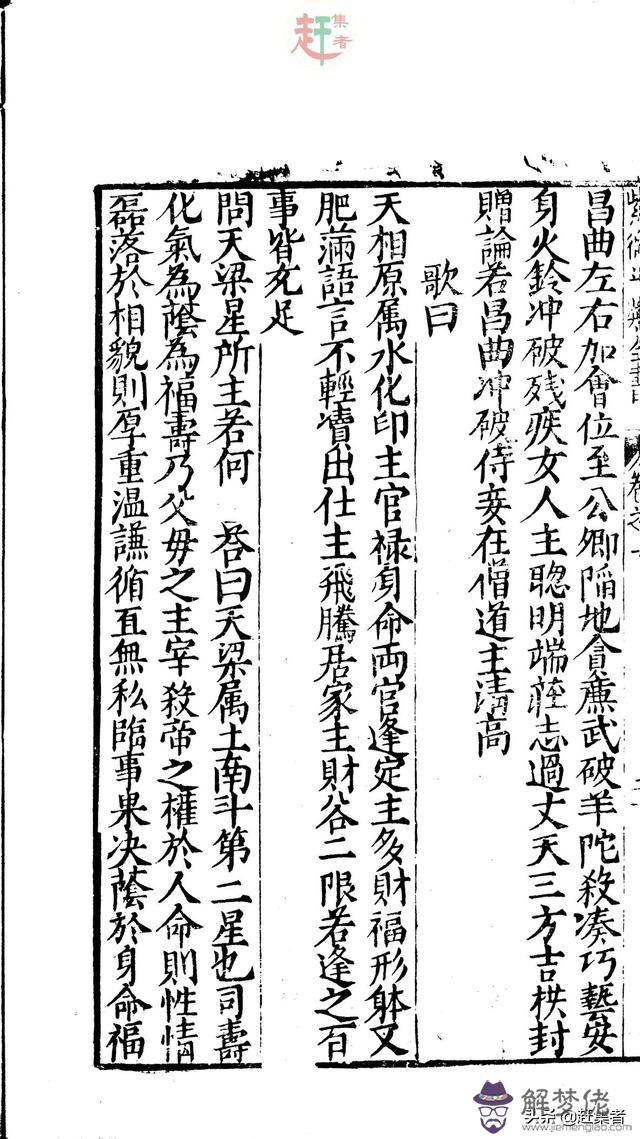 赶集者
紫微斗數全書 卷之一
昌曲左右加會位至公卿陷地貪廉武破羊陀殺湊巧藝安
身火鈴冲破残疾女人主聰明端莊志過丈夫三方吉拱封
贈論若昌曲冲破侍妾在僧道主清高
歌曰
天相原属水化印主官禄身命兩宫逢定主多財福形躰又
肥滿語言不輕瀆出仕主飛騰居家主財谷二限若逢之百
事皆充足
問天梁星所主若何 荅曰天梁属土南斗第二星也司壽
化氣為蔭為福壽乃父母之主宰殺帝之權於人命則性情
磊落於相貌則厚重温謙循直無私臨事果决蔭於身命福
解梦佬
www.jiemenglao.com
头条 @赶集者